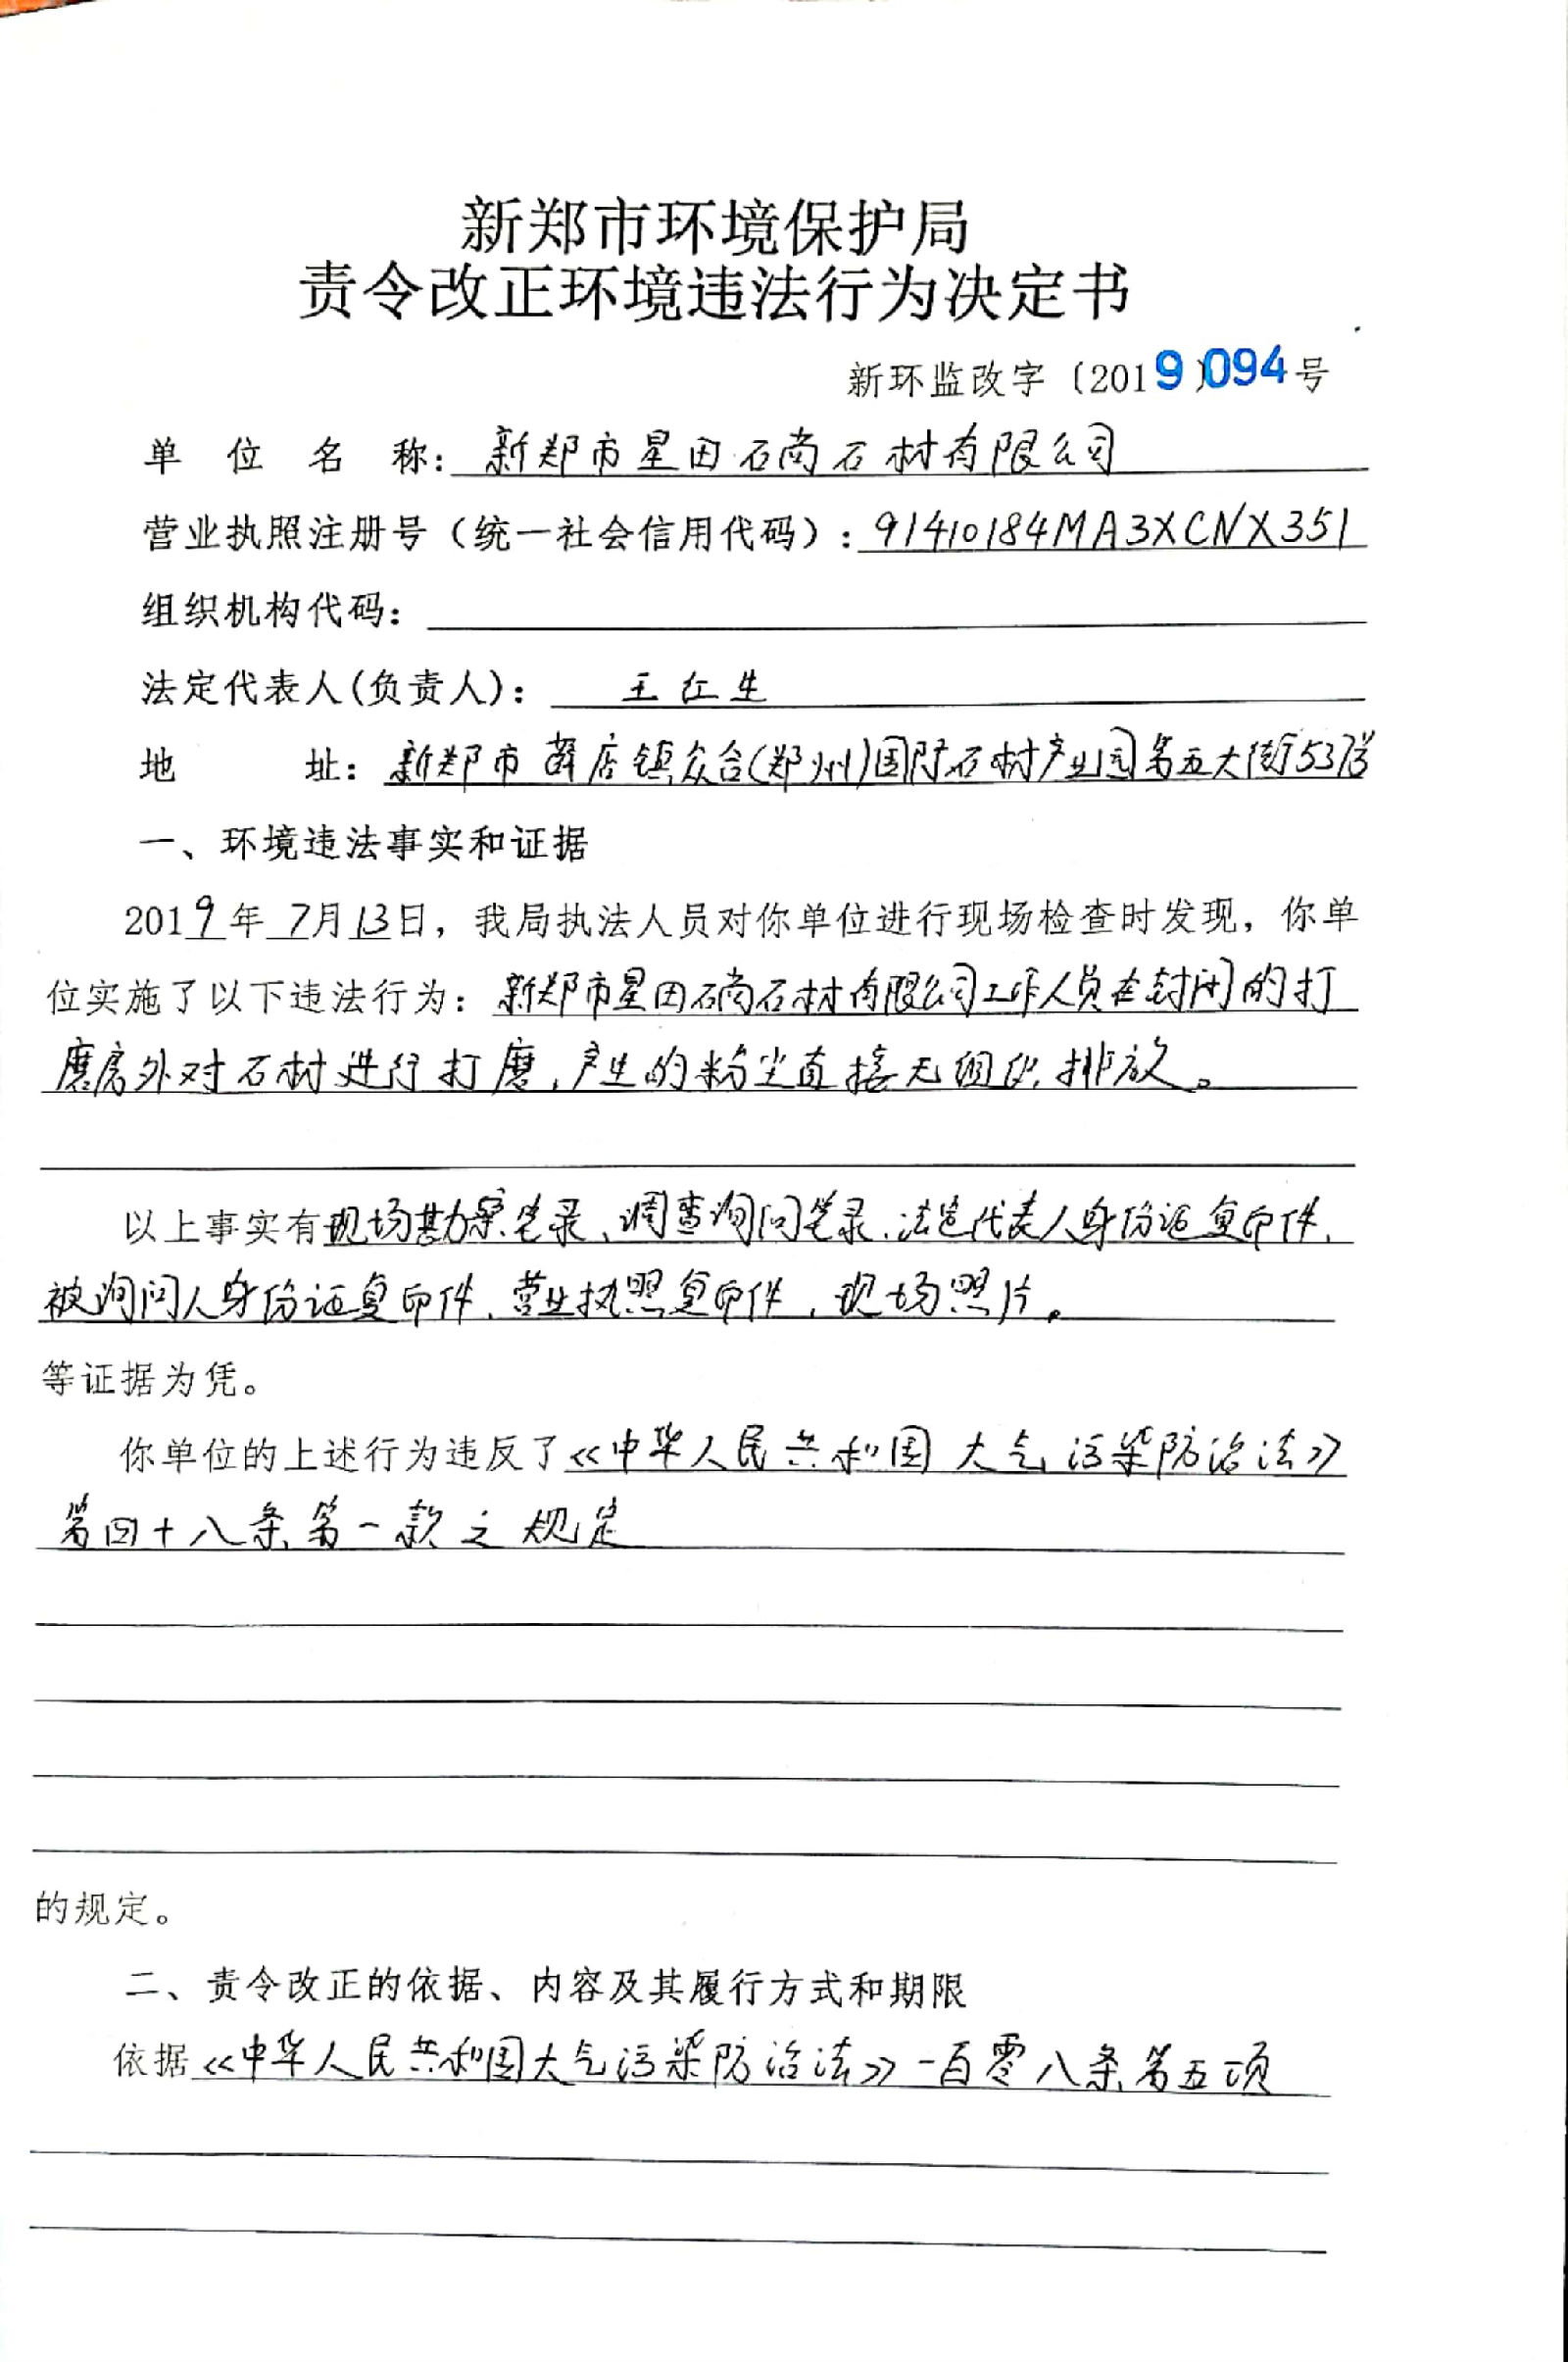 新郑市环境保护局
责令改正环境违法行为决定书
新环监改字〔2019〕094号
单位名称：新郑市星田石尚石材有限公司
营业执照注册号（统一社会信用代码）：91410184MA3XCNX351
组织机构代码：
法定代表人(负责人)：王红生
地址：新郑市薛店镇众合(郑州)国际石材产业园第五大街537号
一、环境违法事实和证据
2019年7月13日，我局执法人员对你单位进行现场检查时发现，你单
位实施了以下违法行为：新郑市星田石尚石材有限公司工作人员在封闭的打
磨房外对石材进行打磨，产生的粉尘直接无组织排放。
以上事实有现场勘察笔录、调查询问笔录、法定代表人身份证复印件、
被询问人身份证复印件、营业执照复印件、现场照片。
等证据为凭。
你单位的上述行为违反了《中华人民共和国大气污染防治法》
第四十八条第一款之规定
的规定。
二、责令改正的依据、内容及其履行方式和期限
依据《中华人民共和国大气污染防治法》一百零八条第五项